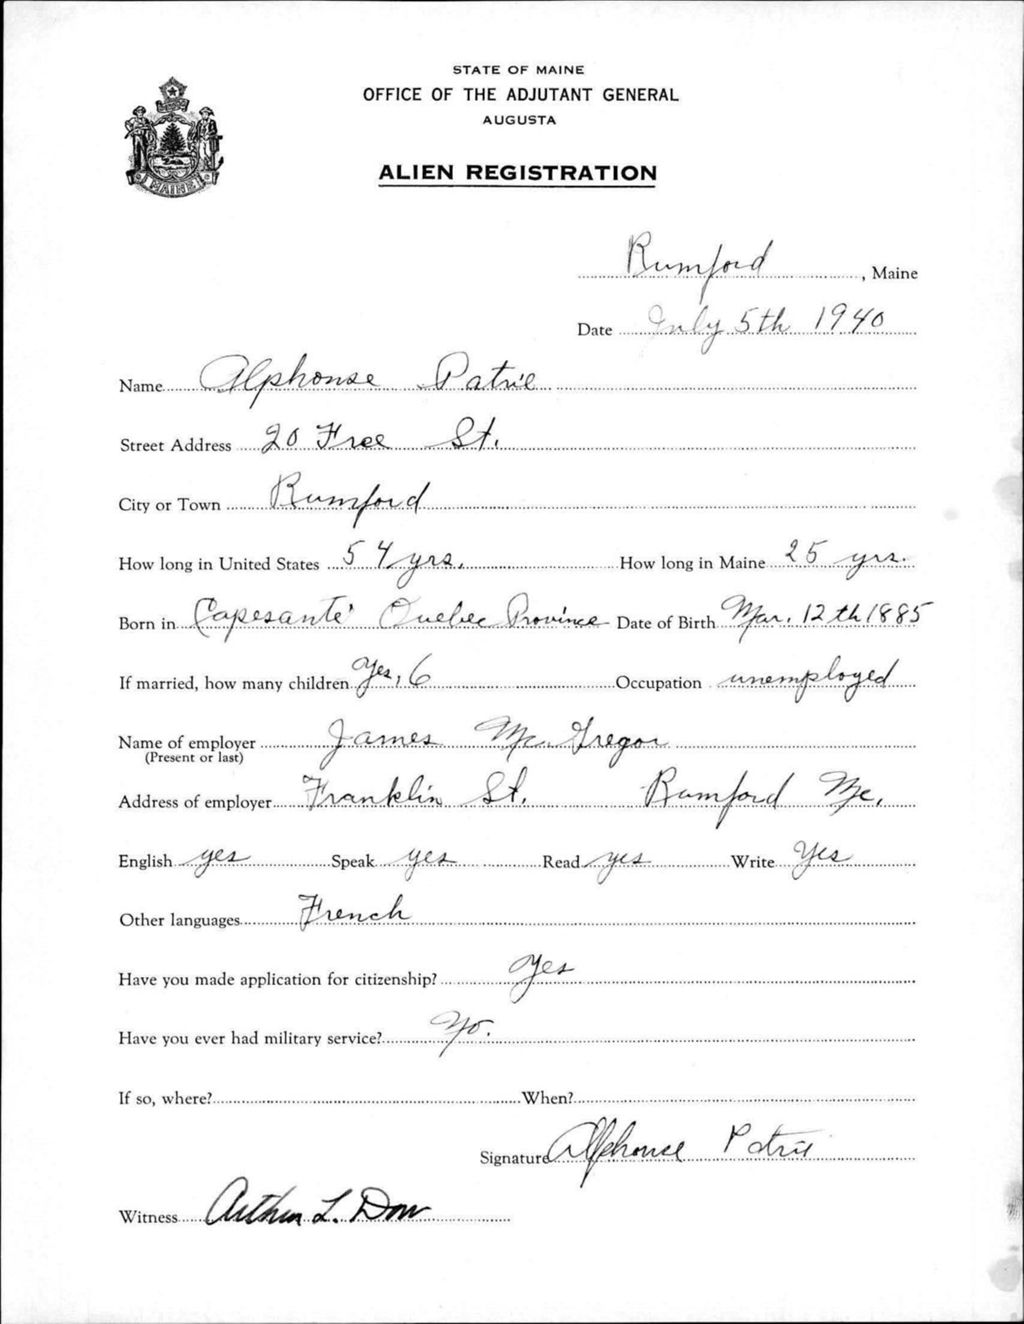 STATE OF MAINE
OFFICE OF THE ADJUTANT GENERAL
AUGUSTA
ALIEN REGISTRATION
MAINE
Rumford, Maine
Date July 5th 1940
Name Alphonse Patrie
Street Address 20 Free St.
City or Town Rumford
How long in United States 54 yrs. How long in Maine 25 yrs.
Born in Capesante' Quebec Province Date of Birth Mar. 12th 1885
If married, how many children Yes, 6 Occupation unemployed
Name of employer James Mc. Gregor
(Present or last)
Address of employer Franklin St. Rumford Me.
English yes Speak yes Read yes Write Yes
Other languages French
Have you made application for citizenship? Yes
Have you ever had military service? No.
If so, where? When?
Signature Alphonse Patrie
Witness Arthur L. Dow